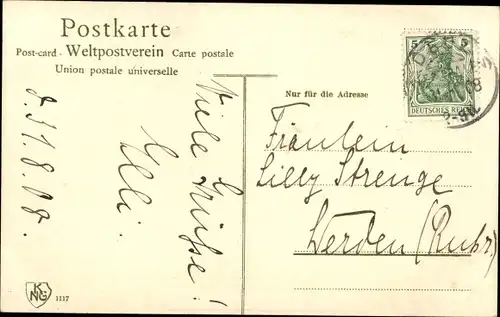 Postkarte
Post-card - Weltpostverein Carte postale
Union postale universelle
Nur für die Adresse
5 5
DEUTSCHES REICH
d. 31.8.08.
Viele
Grüße!
Elli.
Fräulein
Lilly Strenge
Werden (Ruhr.)
K
NG
1117